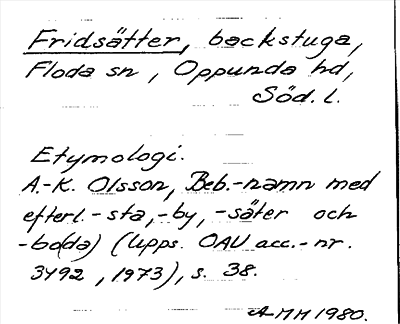 Fridsätter, backstuga,
Floda sn, Oppunda hd,
Söd. l.
Etymologi.
A.-K. Olsson, Beb.-namn med
efterl. -sta, -by, -säter och
-bo(da) (Upps. OAU acc.-nr.
3492, 1973), s. 38.
AMH 1980.